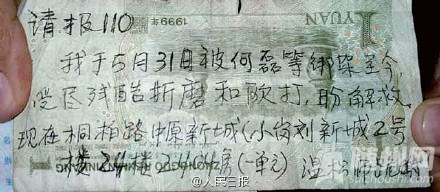 请报110
YUAN
1999年
我于5月31日被何磊等绑架至今,
受尽残酷折磨和欧打,盼解救.
现在桐柏路中原新城(小岗刘新城2号
楼24楼2404房(一单元)
@人民日报